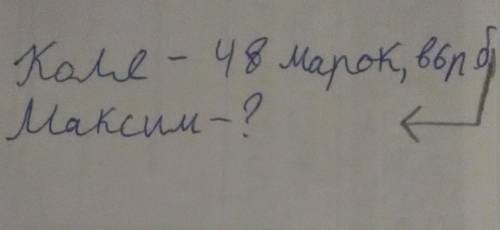 Коля - 48 марок, в 6 р б
Максим - ?